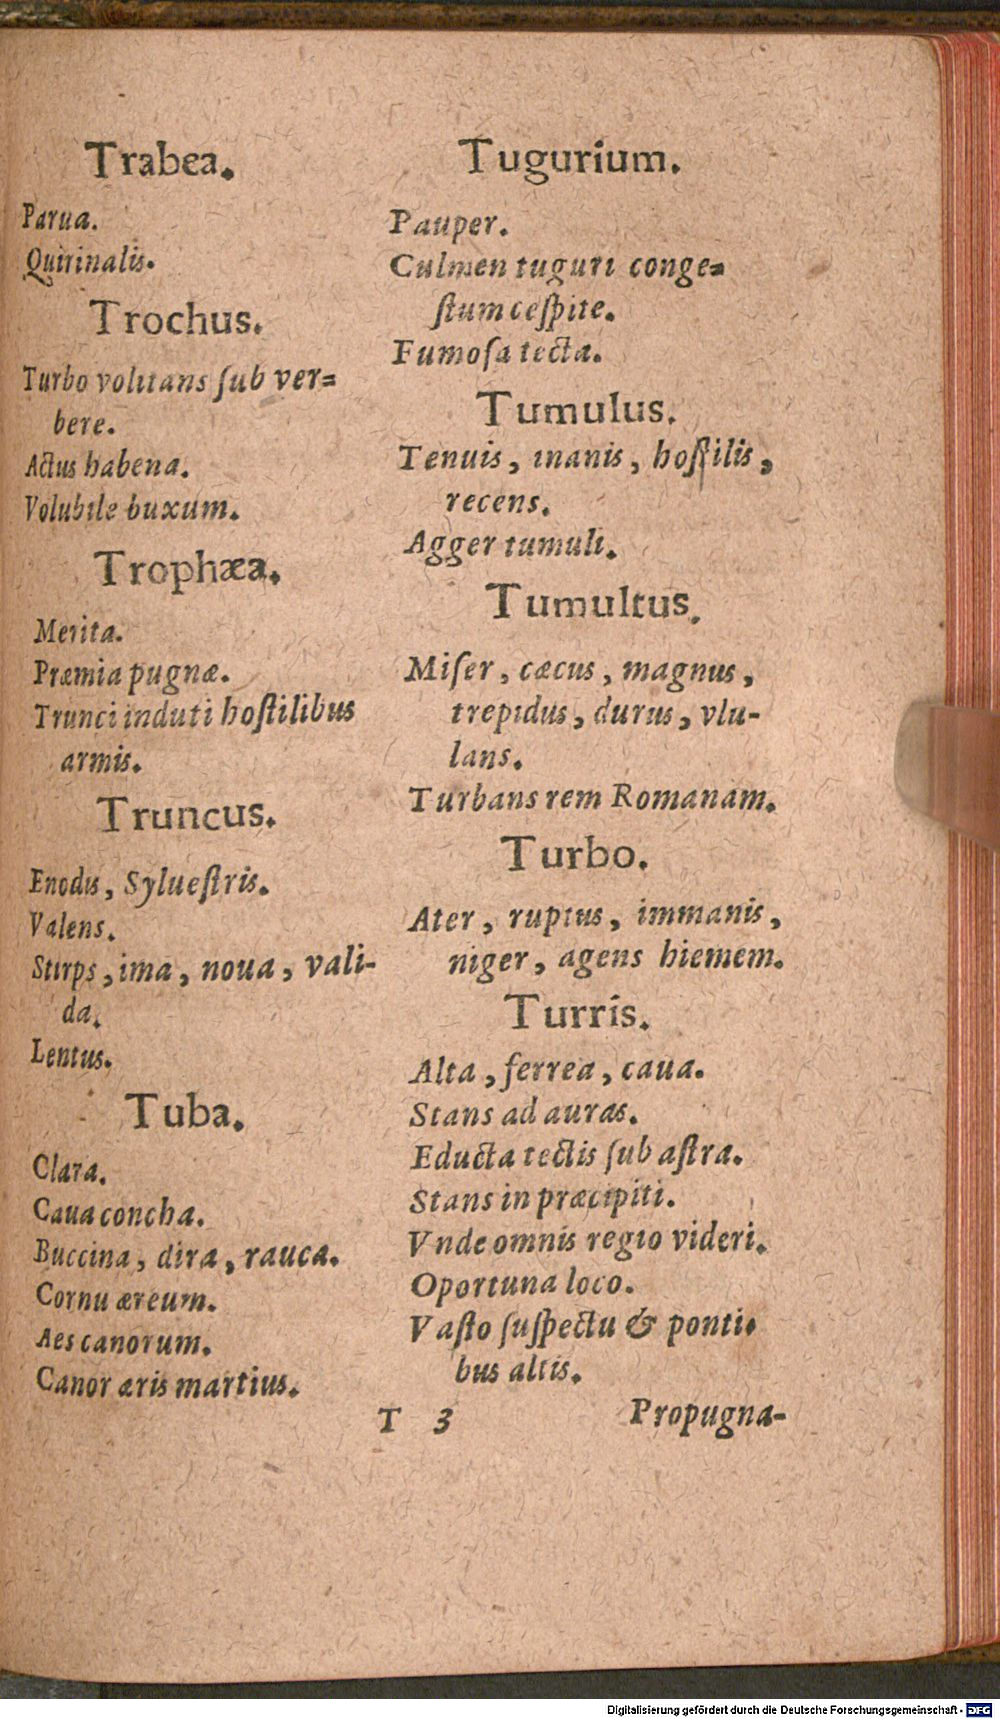 Trabea.
Parua.
Quirinalis.
Trochus.
Turbo volitans ſub ver=
bere.
Actus habena.
Volubile buxum.
Trophæa.
Merita.
Præmia pugnæ.
Trunci induti hoſtilibus
armis.
Truncus.
Enodis, Sylueſtris.
Valens.
Stirps, ima, noua, vali-
da.
Lentus.
Tuba.
Clara.
Caua concha.
Buccina, dira, rauca.
Cornu æreum.
Aes canorum.
Canor æris martius.
Tugurium.
Pauper.
Culmen tuguri conge=
ſtum ceſpite.
Fumoſa tecta.
Tumulus.
Tenuis, inanis, hoſtilis,
recens.
Agger tumuli.
Tumultus.
Miſer, cæcus, magnus,
trepidus, durus, vlu-
lans.
Turbans rem Romanam.
Turbo.
Ater, ruptus, immanis,
niger, agens hiemem.
Turris.
Alta, ferrea, caua.
Stans ad auras.
Educta tectis ſub aſtra.
Stans in præcipiti.
Vnde omnis regio videri.
Oportuna loco.
Vaſto ſuſpectu & ponti-
bus altis.
T 3
Propugna-
Digitalisierung gefördert durch die Deutsche Forschungsgemeinschaft - DFG